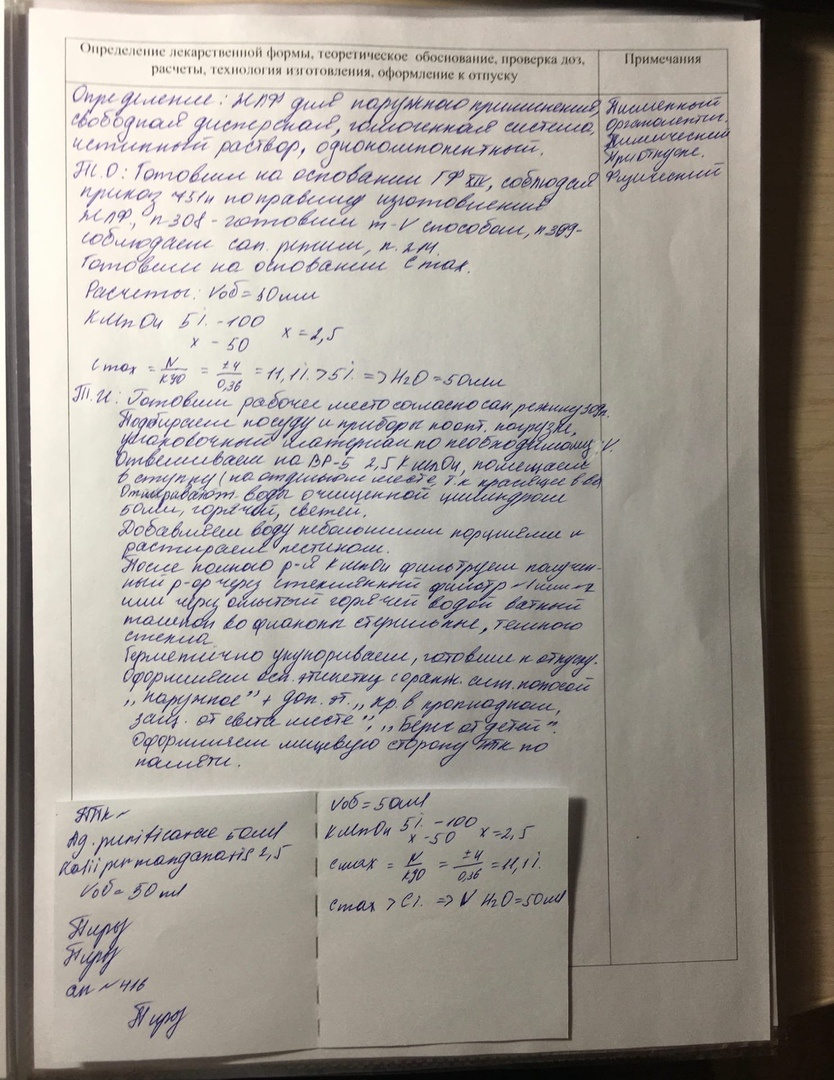 Определение лекарственной формы, теоретическое обоснование, проверка доз,
расчеты, технология изготовления, оформление к отпуску
Примечания
Определение: ЖЛФ для наружного применения,
свободная дисперсная, гомогенная система,
истинный раствор, однокомпонентный.
Письменный
Органолептич.
Химический
При отпуске.
Физический
Т.О: Готовим на основании ГФ XIV, соблюдая
приказ 751н по правилу изготовления
ЖЛФ, п 308 - готовим m-V способом, п 309-
соблюдаем сан. режим, п. 214.
Готовим на основании Cmax.
Расчеты: Vоб = 50мл
KMnO4 5% - 100
x - 50 x = 2,5
Cmax = N/КУО = ±4/0,36 = 11,1% > 5% => H2O = 50мл
Т.И: Готовим рабочее место согласно сан. режиму 309п.
Подбираем посуду и приборы по опт. погрузки,
упаковочный материал по необходимому V.
Отвешиваем на ВР-5 2,5 KMnO4, помещаем
в ступку (на отдельном месте, т.к красящее в-во
Отмеривают воды очищенной цилиндром
50мл, горячей, свежей.
Добавляем воду небольшими порциями и
растираем пестиком.
После полного р-я KMnO4 фильтруем получен-
ный р-ор через стеклянный фильтр ~1 или ~2
или через омытый горячей водой ватный
тампон во флаконы стерильные, темного
стекла
Герметично укупориваем, готовим к отпуску.
Оформляем осн. этикетку с оранж. сигн. полосой
,,наружное" + доп. эт. ,,хр. в прохладном,
защ. от света месте", ,,Беречь от детей".
Оформляем лицевую сторону ППК по
памяти.
ППК ~
Aq. purificatae 50ml
Kalii permanganatis 2,5
Vоб = 50 ml
ан ~ 416
Vоб = 50мл
KMnO4 5% - 100
x - 50 x = 2,5
Cmax = N/КУО = ±4/0,36 = 11,1%
Cmax > C% => V H2O = 50мл